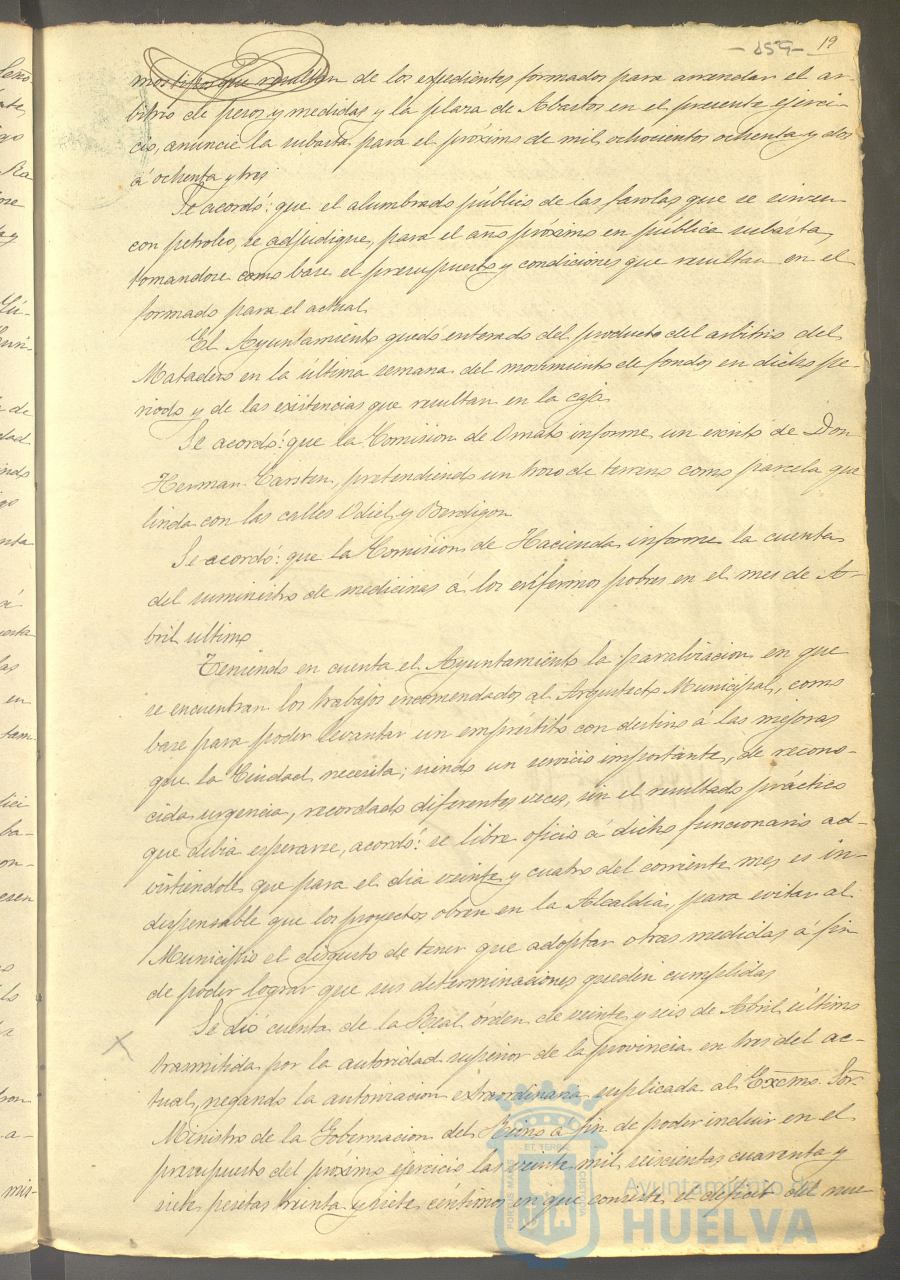 -159- 19
mos tipos que resultan de los expedientes formados para arrendar el ar-
bitrio de pesos y medidas y la plaza de Abastos en el presente ejerci-
cio, anuncie la subasta para el próximo de mil ochocientos ochenta y dos
á ochenta y tres
Se acordó: que el alumbrado público de las farolas que se sirven
con petroleo, se adjudique, para el año próximo en pública subasta,
tomandose como base el presupuesto y condiciones que resultan en el
formado para el actual
El Ayuntamiento quedó enterado del producto del arbitrio del
Matadero en la última semana del movimiento de fondos en dicho pe-
riodo y de las existencias que resultan en la caja
Se acordó: que la Comision de Ornato informe un escrito de Don
Herman Carsten, pretendiendo un trozo de terreno como parcela que
linda con las calles Odiel y Berdigon
Se acordó: que la Comision de Hacienda informe la cuenta
del suministro de medicinas á los enfermos pobres en el mes de A-
bril último
Teniendo en cuenta el Ayuntamiento la paralizacion en que
se encuentran los trabajos encomendados al Arquitecto Municipal, como
base para poder levantar un empréstito con destino á las mejoras
que la Ciudad necesita; siendo un servicio importante, de recono-
cida urgencia, recordado diferentes veces, sin el resultado práctico
que debia esperarse, acordó: se libre oficio á dicho funcionario ad-
virtiendole que para el dia veinte y cuatro del corriente mes es in-
dispensable que los proyectos obren en la Alcaldia, para evitar al
Municipio el disgusto de tener que adoptar otras medidas á fin
de poder lograr que sus determinaciones queden cumplidas
Se dió cuenta de la Real órden de veinte y seis de Abril último
trasmitida por la autoridad superior de la provincia en tres del ac-
tual, negando la autorizacion extraordinaria suplicada al Excmo. Sor.
Ministro de la Gobernacion del Reino á fin de poder incluir en el
presupuesto del próximo ejercicio las veinte mil seiscientas cuarenta y
siete pesetas treinta y siete céntimos en que consiste el déficit del mue
Ayuntamiento de
HUELVA